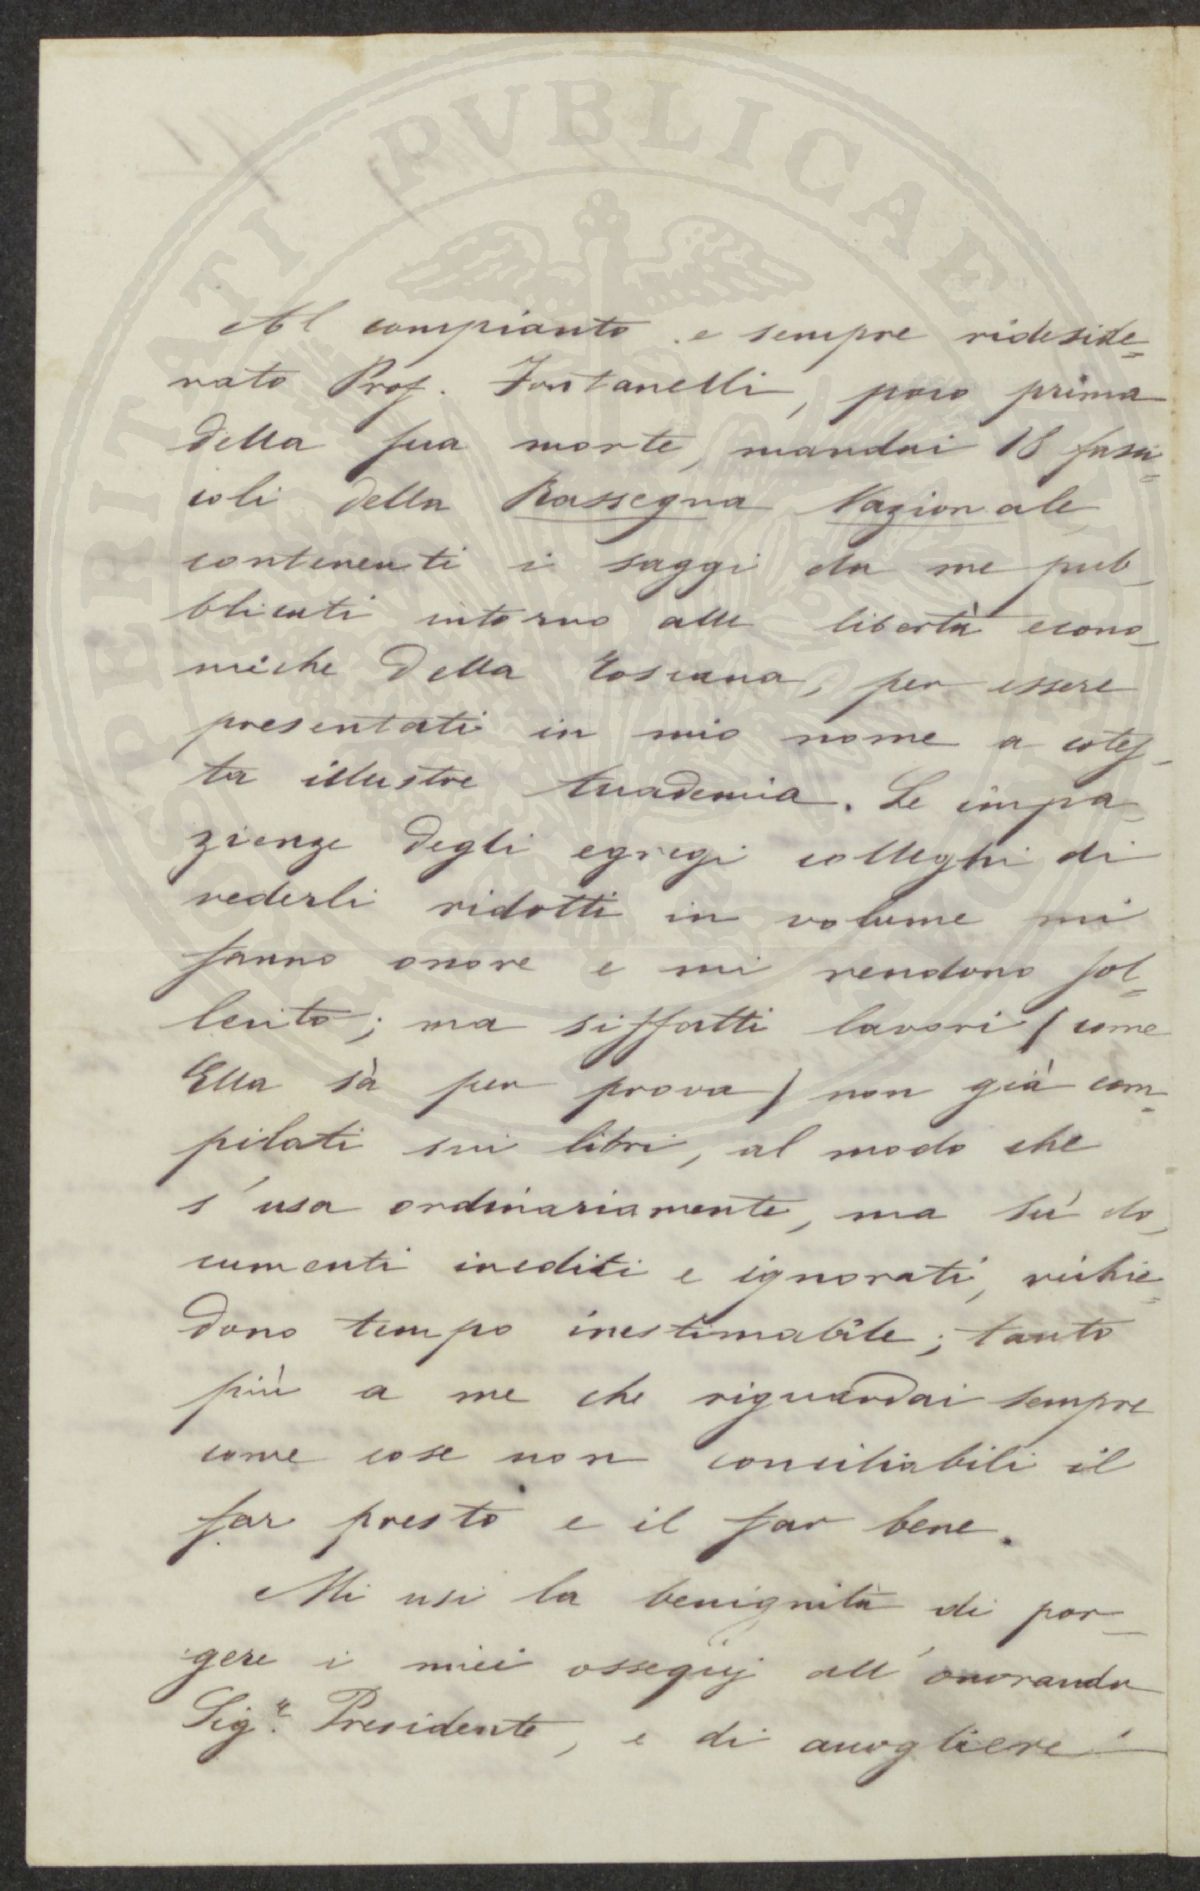 PROSPERITATI PUBLICAE
Al compianto e sempre rideside=
rato Prof. Fontanelli, poco prima
della sua morte, mandai 18 fasci=
coli della Rassegna Nazionale
contenenti i saggi da me pub_
blicati intorno alle libertà econo_
miche della Toscana, per essere
presentati in mio nome a cotes_
ta illustre Accademia. Le impa_
zienze degli egregi colleghi di
vederli ridotti in volume mi
fanno onore e mi rendono sol=
lecito; ma siffatti lavori (come
Ella sà per prova) non già com=
pilati sui libri, al modo che
s'usa ordinariamente, ma sù do_
cumenti inediti e ignorati, richie=
dono tempo inestimabile; tanto
più a me che riguardai sempre
come cose non conciliabili il
far presto e il far bene.
Mi usi la benignità di por_
gere i miei ossequij all'onorando
Sig.r Presidente, e di accogliere